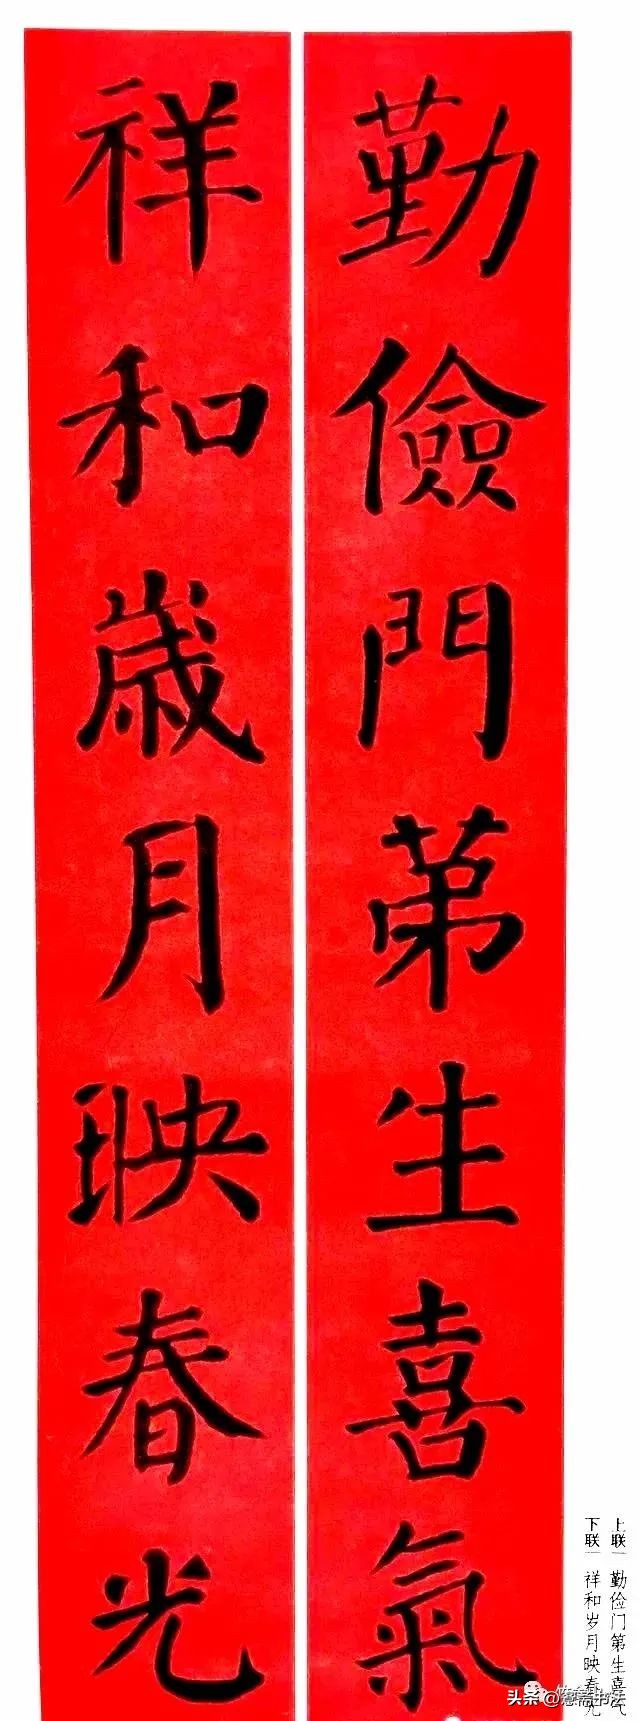 勤儉門第生喜氣
祥和歲月映春光
上联— 勤俭门第生喜气
下联— 祥和岁月映春光
头条